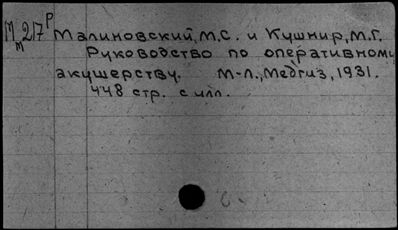 М 217 Р Малиновский, М.С. и Кушнир, М.Г.
м
Руководство по оперативному
акушерству. М-Л., Медгиз, 1931.
448 стр. с илл.